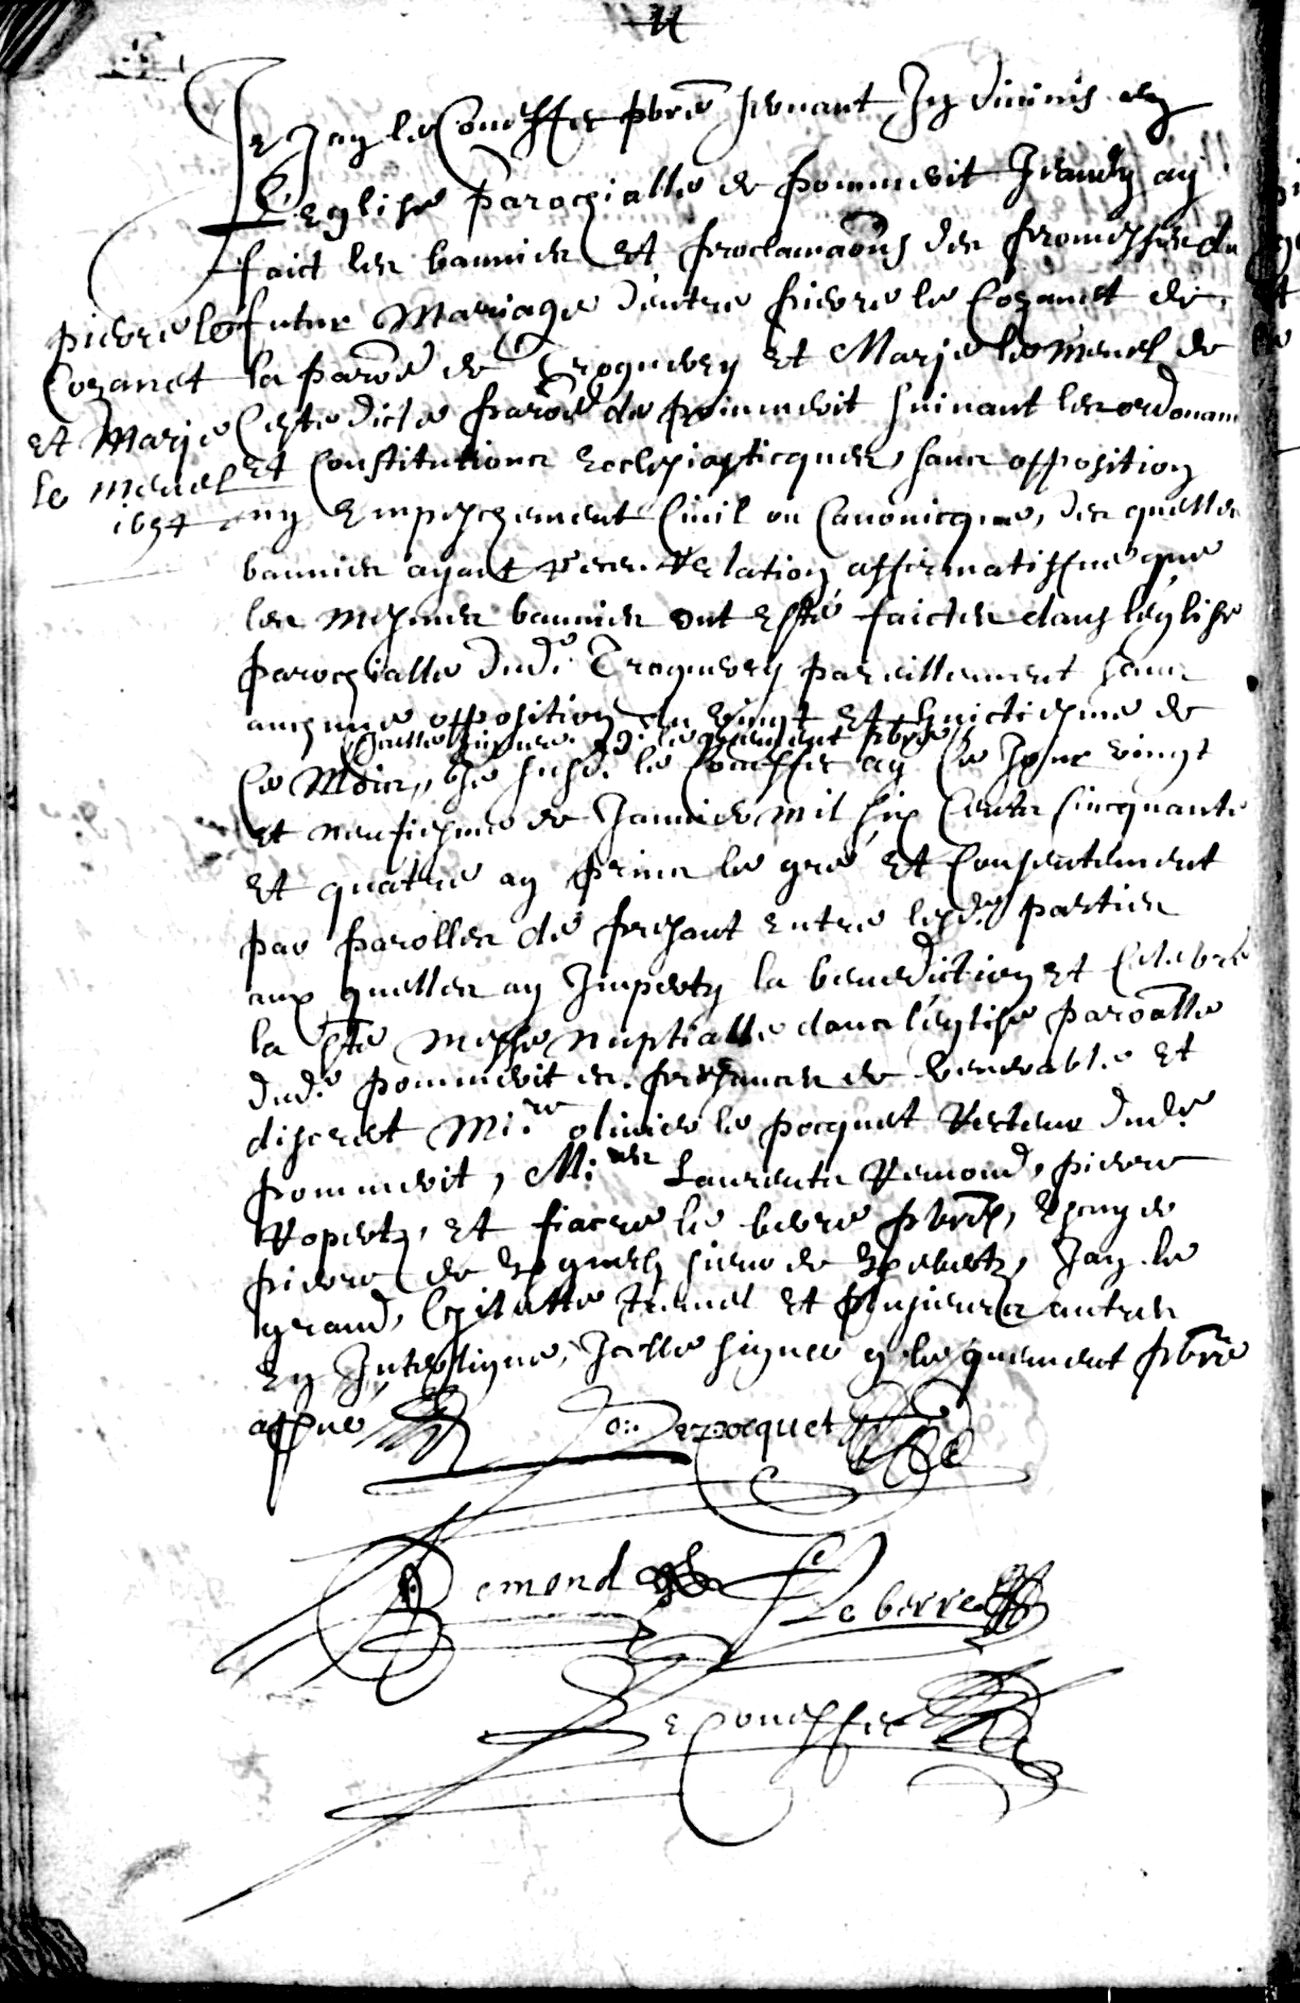 Je Jan le Couffer pbre servant In divinis en
L'eglise Parochialle de pommerit Jeaudy ay
faict les bannies et proclamaons des promesses du
futur Mariage d'entre pierre le Cozanet de
la paroe de Troguery et Marje le Merrel de
Ceste dicte paroe de pommerit suivant les ordonan
et Constitutions Ecclesiasticques, sans opposition
ny Empeschement Civil ou Canonicque, des quelles
bannies ayant veu relation affirmatiffve que
les Mesmes bannies ont esté faictes dans léglise
Parochialle dudt Troguery pareillement sans
aucune opposition du vingt et huictiesme de
Ce Mois, Je susdt le Couffer ay Ce Jour vingt
Icelle signee le quement pbre
et neufiesme de Janvier mil six Cents Cincquante
et quatre ay prins le gré et Consentement
par parolles de presant entre lesdt parties
aux quelles ay Imperty la benediction et Celebré
la ste messe Nuptialle dans l'eglise paroalle
dudt pommerit es presances de venerable et
discret Mi:re olivier le pocquet Recteur dudt
pommerit, M:res Laurents Remond, pierre
Ropertz, et fiacre le berre pbres, Escuyer
pierre de sieur de Jan le
grand, et plusieurs autres
En Interligne, Icelle signee y le quement pbre
apprué
o: Le pocquet
Remond
f Le berre
Le Couffer
pierre le
Cozanet
et Marje
le merrel
1654